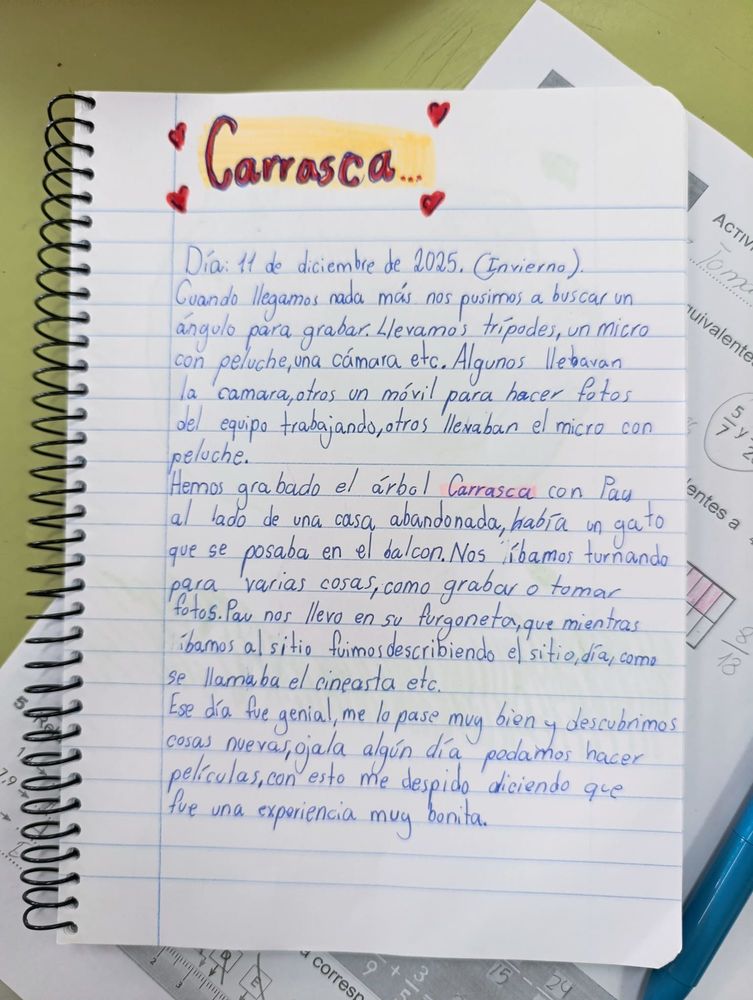 Carrasca...
Día: 11 de diciembre de 2025. (Invierno).
Cuando llegamos nada más nos pusimos a buscar un
ángulo para grabar. Llevamos trípodes, un micro
con peluche, una cámara etc. Algunos llebavan
la camara, otros un móvil para hacer fotos
del equipo trabajando, otros llevaban el micro con
peluche.
Hemos grabado el árbol Carrasca con Pau
al lado de una casa abandonada, había un gato
que se posaba en el balcon. Nos íbamos turnando
para varias cosas, como grabar o tomar
fotos. Pau nos llevo en su furgoneta, que mientras
íbamos al sitio fuimos describiendo el sitio, día, como
se llamaba el cineasta etc.
Ese día fue genial, me lo pase muy bien y descubrimos
cosas nuevas, ojala algún día podamos hacer
películas, con esto me despido diciendo que
fue una experiencia muy bonita.